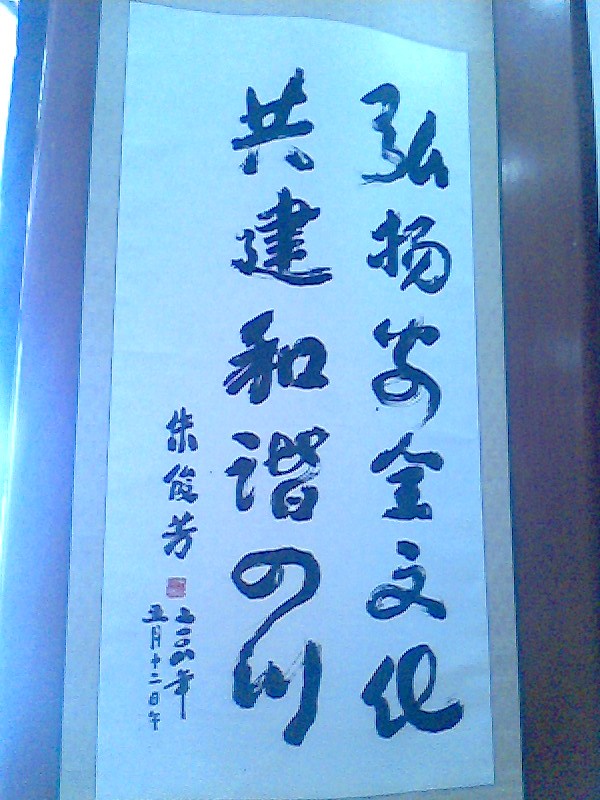 弘扬安全文化
共建和谐四川
朱俊芳
二〇〇八年
五月十二日午